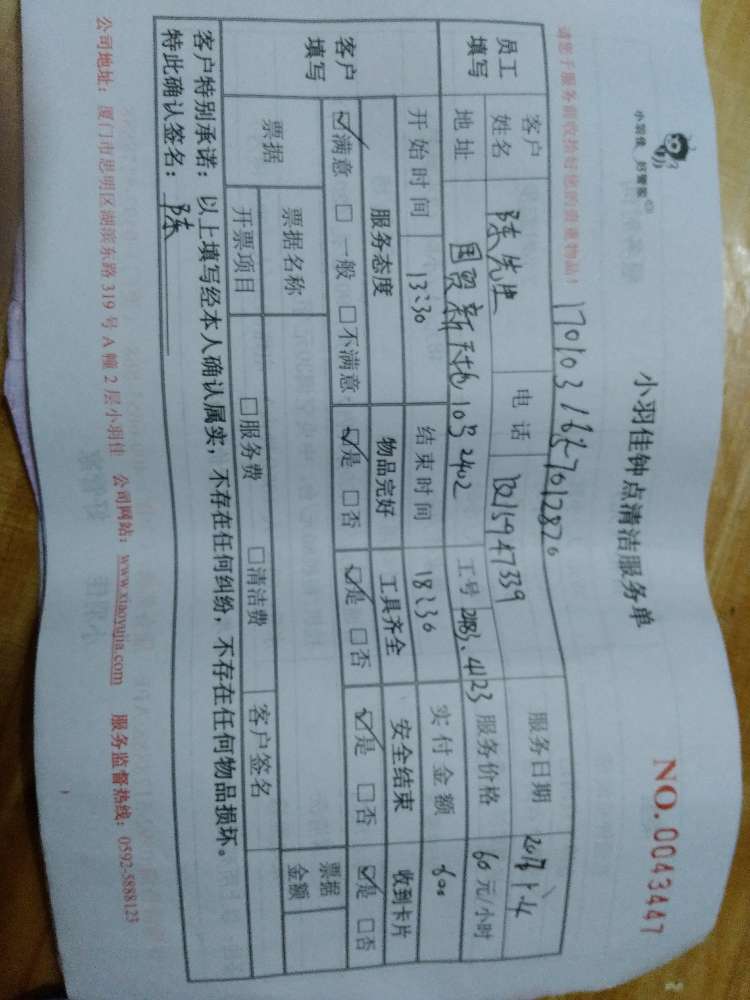 小羽佳 好管家
小羽佳钟点清洁服务单
NO.0043447
请您于服务前收拾好您的贵重物品!
员工填写
客户姓名 陈先生 电话 服务日期
地址 国贸新天地10号2402 工号 2183、4123 服务价格 60元/小时
开始时间 13:30 结束时间 18:30 实付金额 600
客户填写
服务态度 物品完好 工具齐全 安全结束 收到卡片
☑满意 □一般 □不满意 ☑是 □否 ☑是 □否 ☑是 □否 ☑是 □否
票据 票据名称 票据金额
开票项目 □服务费 □清洁费 客户签名
客户特别承诺:以上填写经本人确认属实,不存在任何纠纷,不存在任何物品损坏。
特此确认签名:陈
公司地址:厦门市思明区湖滨东路319号A幢2层小羽佳 公司网站:www.xiaoyujia.com 服务监督热线:0592-5888123